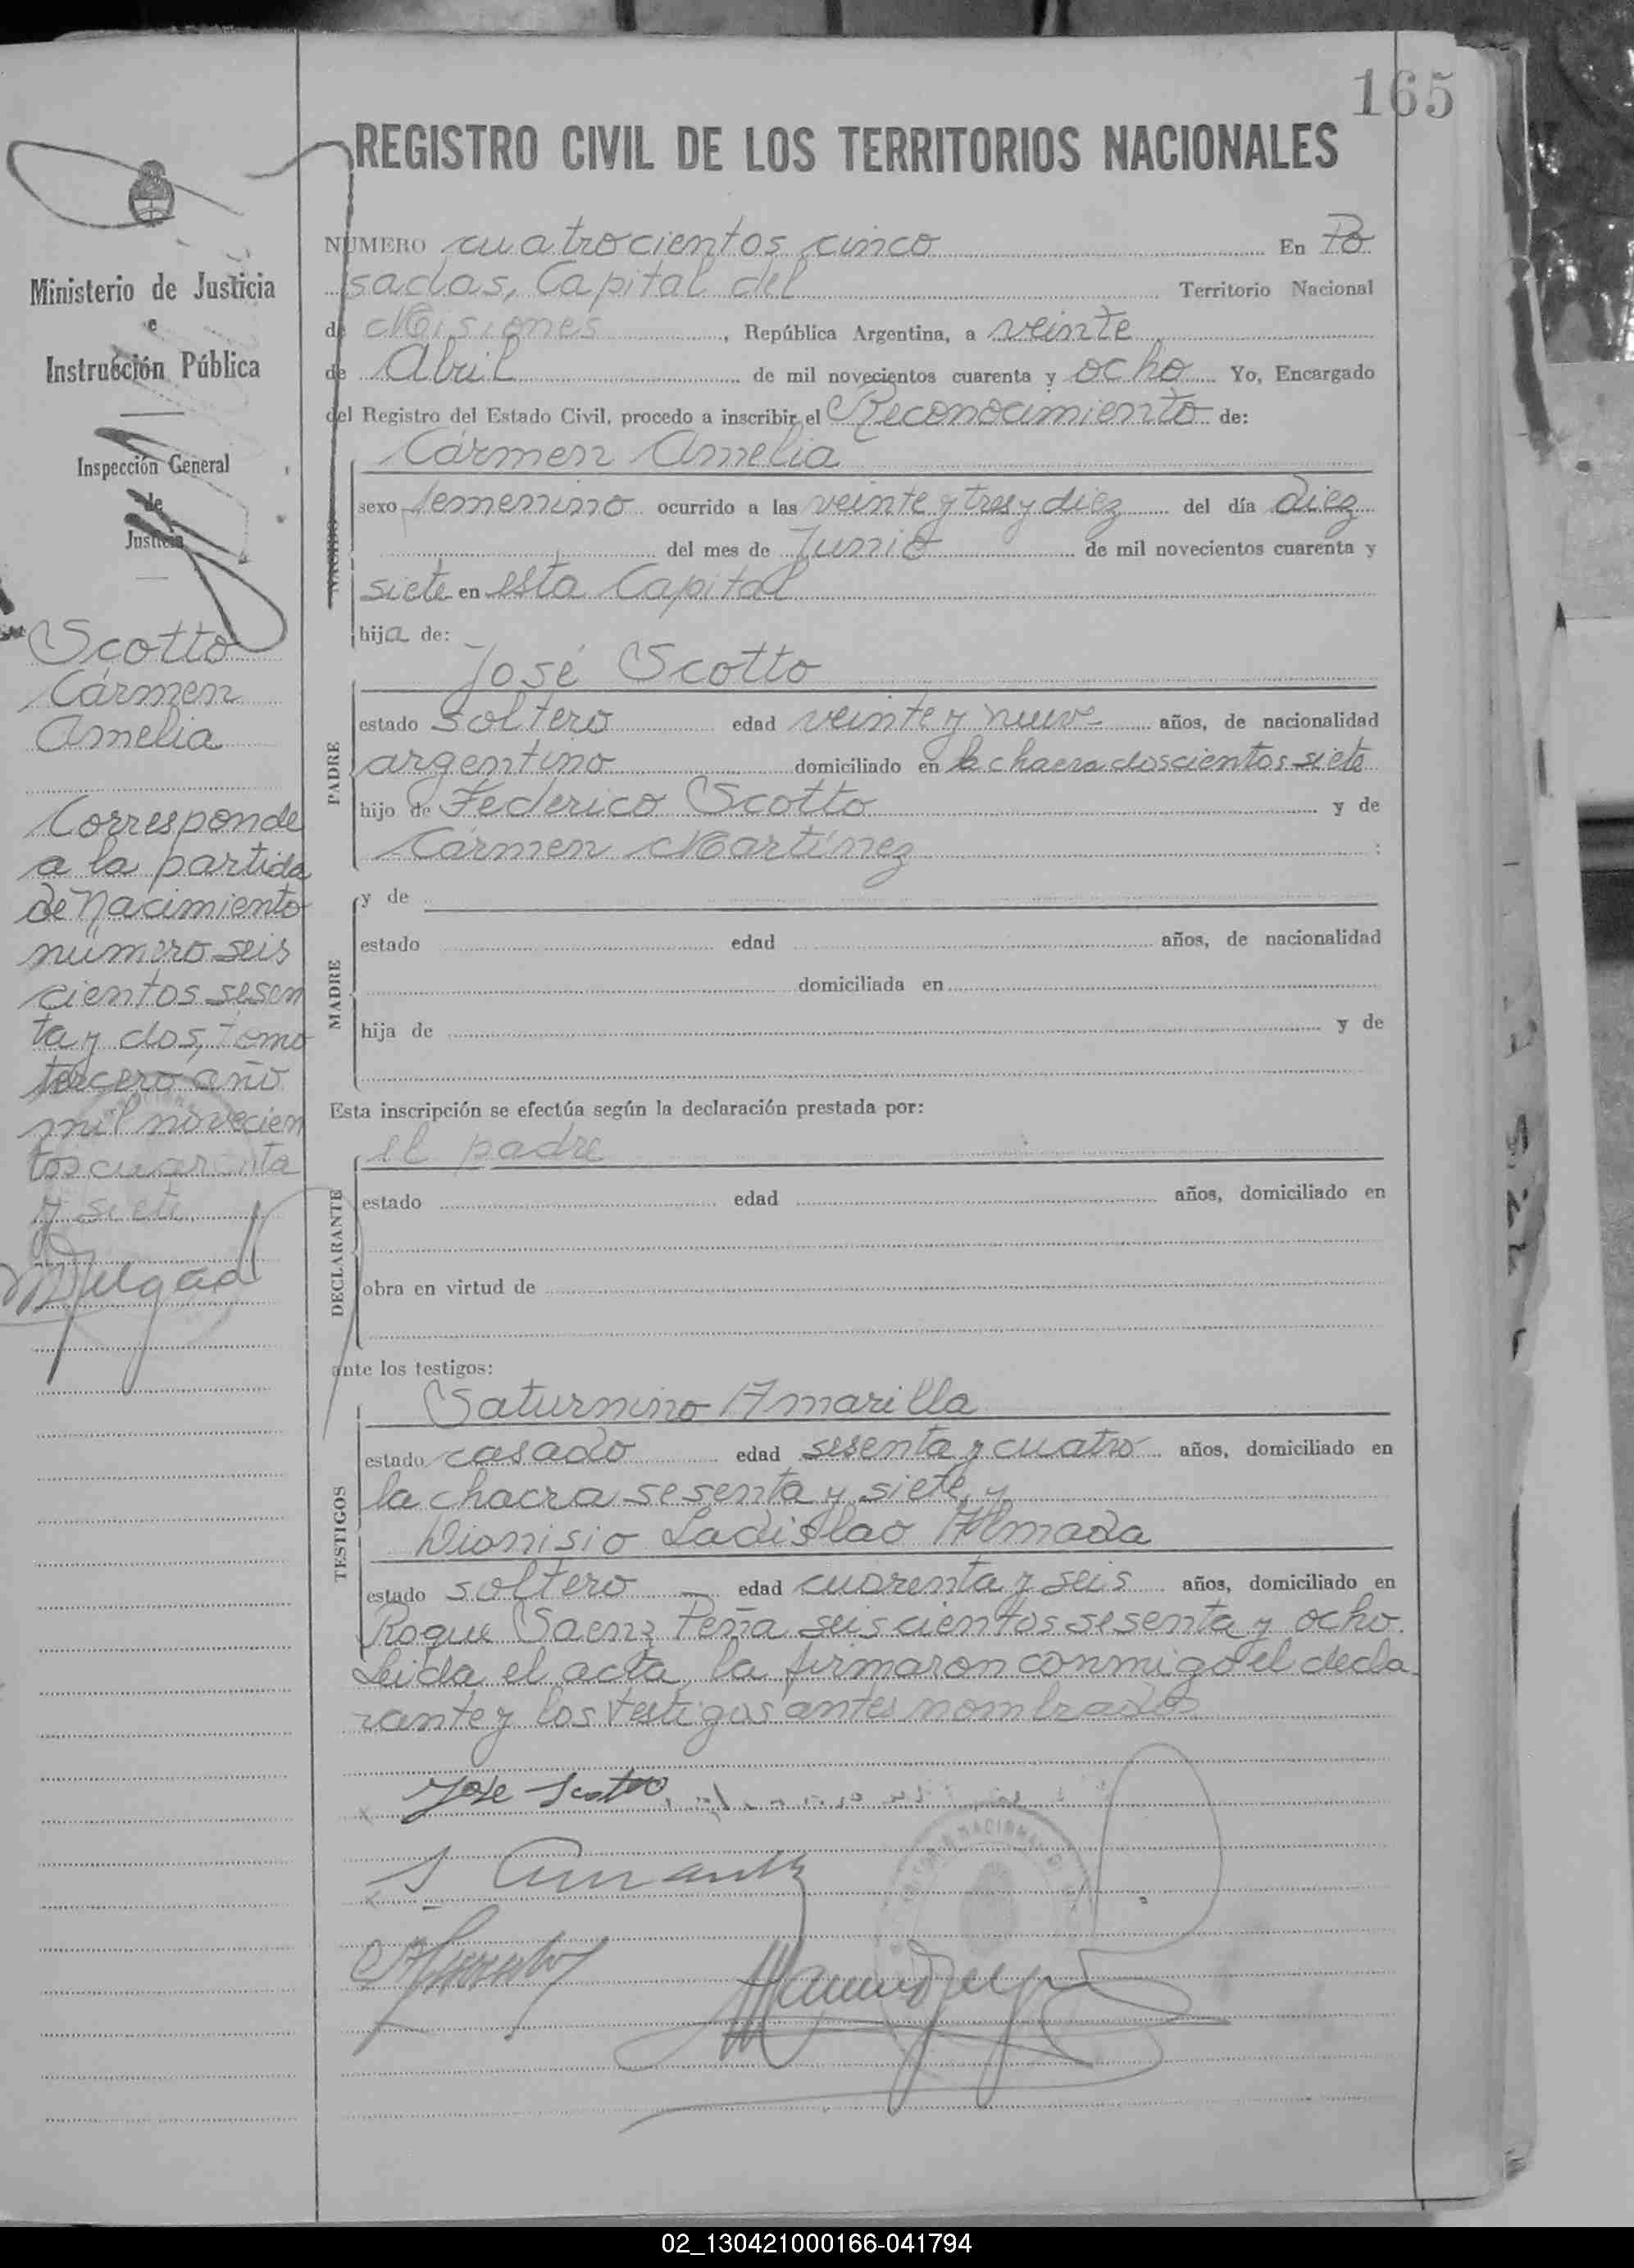 165
REGISTRO CIVIL DE LOS TERRITORIOS NACIONALES
NUMERO cuatrocientos cinco En Po
sadas, Capital del Territorio Nacional
de Misiones, República Argentina, a veinte
de Abril de mil novecientos cuarenta y ocho Yo, Encargado
del Registro del Estado Civil, procedo a inscribir el Reconocimiento de:
NACIDO
Cármen Amelia
sexo femenino ocurrido a las veinte y tres y diez del día diez
del mes de Junio de mil novecientos cuarenta y
siete en esta Capital
hija de:
PADRE
José Scotto
estado soltero edad veinte y nueve años, de nacionalidad
argentino domiciliado en la chacra doscientos siete
hijo de Federico Scotto y de
Cármen Martínez :
MADRE
y de
estado edad años, de nacionalidad
domiciliada en
hija de y de
Esta inscripción se efectúa según la declaración prestada por:
DECLARANTE
el padre
estado edad años, domiciliado en
obra en virtud de
ante los testigos:
TESTIGOS
Saturnino Amarilla
estado casado edad sesenta y cuatro años, domiciliado en
la chacra sesenta y siete, y
Dionisio Ladislao Almada
estado soltero — edad cuarenta y seis años, domiciliado en
Roque Saenz Peña seiscientos sesenta y ocho.
Leida el acta, la firmaron conmigo el decla
rante y los testigos antes nombrados
Jose Scotto
Ministerio de Justicia
e
Instrucción Pública
Inspección General
de
Justicia
Scotto
Cármen
Amelia
Corresponde
a la partida
de Nacimiento
número seis
cientos sesen
ta y dos, tomo
tercero año
mil novecien
tos cuarenta
y siete.
02_130421000166-041794